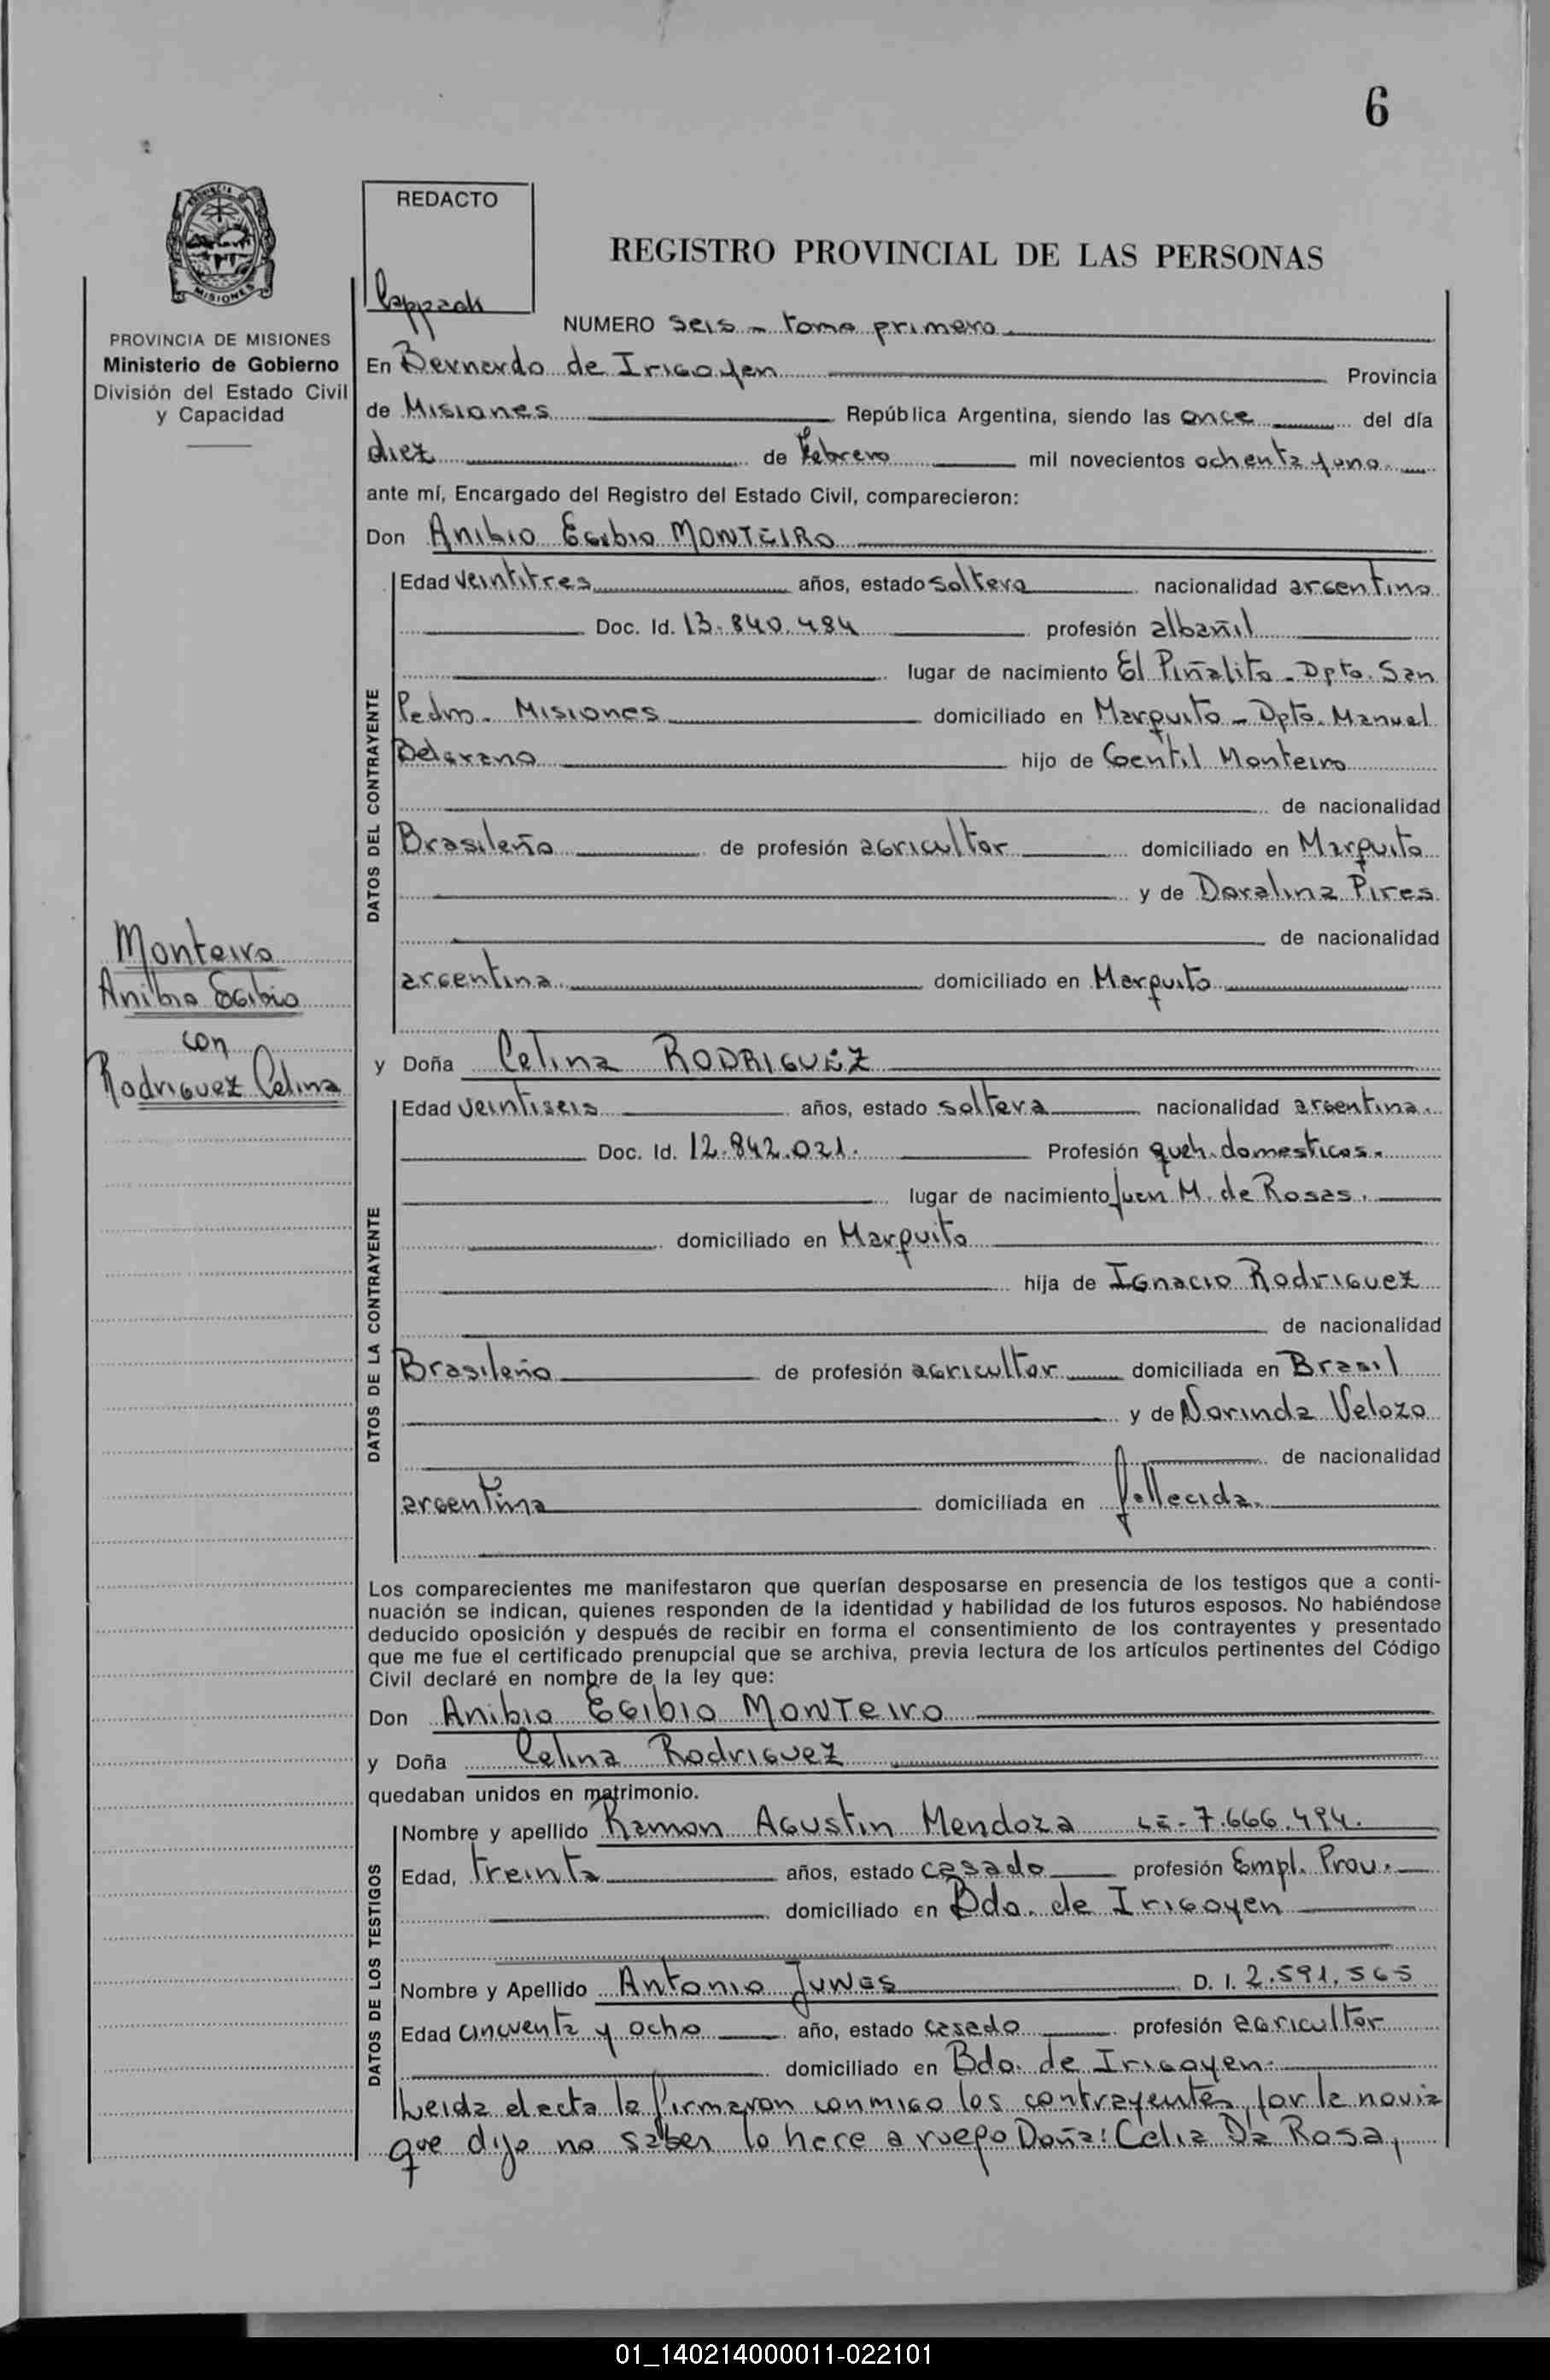 6
REDACTO
REGISTRO PROVINCIAL DE LAS PERSONAS
MISIONES
PROVINCIA DE MISIONES
Ministerio de Gobierno
División del Estado Civil
y Capacidad
NUMERO seis - tomo primero
En Bernardo de Irigoyen Provincia
de Misiones República Argentina, siendo las once del día
diez de Febrero mil novecientos ochenta y uno
ante mí, Encargado del Registro del Estado Civil, comparecieron:
Don Anibio Egibio MONTEIRO
DATOS DEL CONTRAYENTE
Edad veintitres años, estado soltero nacionalidad argentino
Doc. Id. 13.840.484 profesión albañil
lugar de nacimiento El Piñalito - Dpto. San
Pedro - Misiones domiciliado en Marquito - Dpto. Manuel
Belgrano hijo de Gentil Monteiro
de nacionalidad
Brasileño de profesión agricultor domiciliado en Marquito
y de Doralina Pires
de nacionalidad
argentina domiciliado en Marquito
Monteiro
Anibio Egibio
con
Rodriguez Celina
y Doña Celina RODRIGUEZ
DATOS DE LA CONTRAYENTE
Edad veintiseis años, estado soltera nacionalidad argentina.
Doc. Id. 12.842.021. Profesión queh. domesticos.
lugar de nacimiento Juan M. de Rosas.
domiciliado en Marquito
hija de Ignacio Rodriguez
de nacionalidad
Brasileño de profesión agricultor domiciliada en Brasil
y de Norinda Velozo
de nacionalidad
argentina domiciliada en fallecida.
Los comparecientes me manifestaron que querían desposarse en presencia de los testigos que a conti-
nuación se indican, quienes responden de la identidad y habilidad de los futuros esposos. No habiéndose
deducido oposición y después de recibir en forma el consentimiento de los contrayentes y presentado
que me fue el certificado prenupcial que se archiva, previa lectura de los artículos pertinentes del Código
Civil declaré en nombre de la ley que:
Don Anibio Egibio Monteiro
y Doña Celina Rodriguez
quedaban unidos en matrimonio.
DATOS DE LOS TESTIGOS
Nombre y apellido Ramon Agustin Mendoza LE- 7.666.494.
Edad, treinta años, estado casado profesión Empl. Prov.
domiciliado en Bdo. de Irigoyen
Nombre y Apellido Antonio Junes D. I. 2.591.565
Edad cincuenta y ocho año, estado casado profesión agricultor
domiciliado en Bdo. de Irigoyen.
Leida el acta la firmaron conmigo los contrayentes, por la novia
que dijo no saber lo hace a ruego Doña: Celia Da Rosa,
01_140214000011-022101